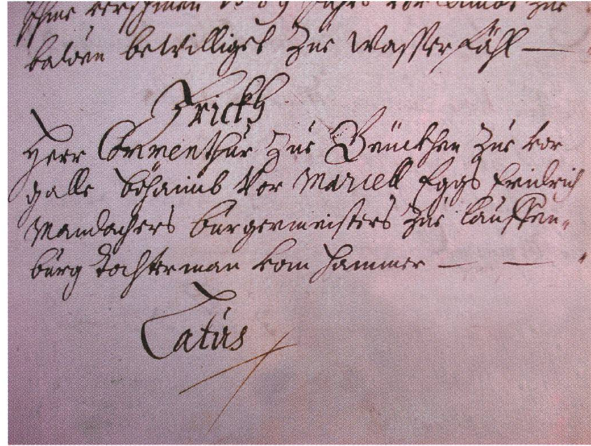 balden bewilliget Zue Wasserfähl —
Frickh
Herr Commenthür Zue Beückhen Zue vor
galle böhaimb vor Marcell Eggs fridrich
Mandachers burgermeisters Zue lauffen-
burg dochterman vom hammer — —
Latus